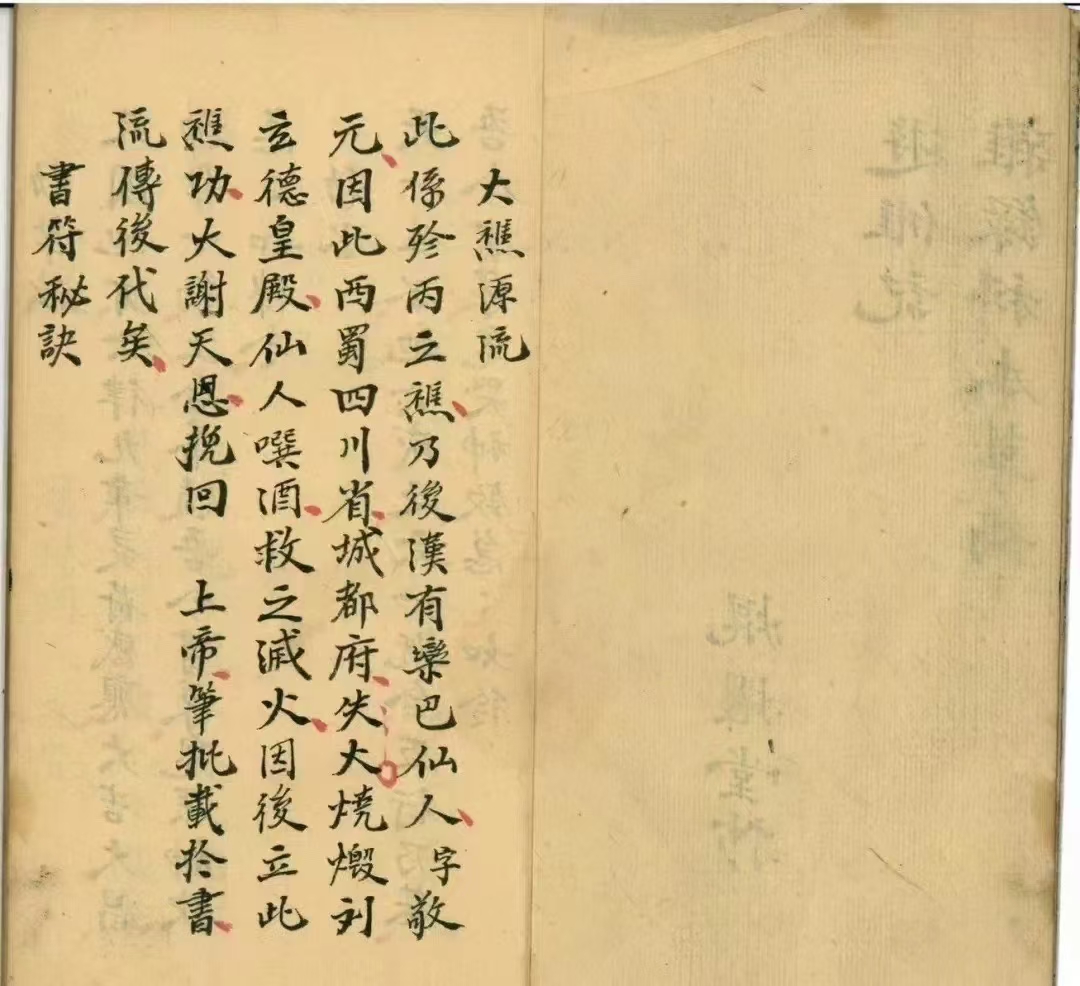 大醮源流
此係殄丙之醮乃後漢有欒巴仙人字敬
元因此西蜀四川省城都府失大燒燬刘
玄德皇殿仙人噀酒救之滅火因後立此
醮功大謝天恩挽回 上帝筆批載於書
流傳後代矣
書符秘訣